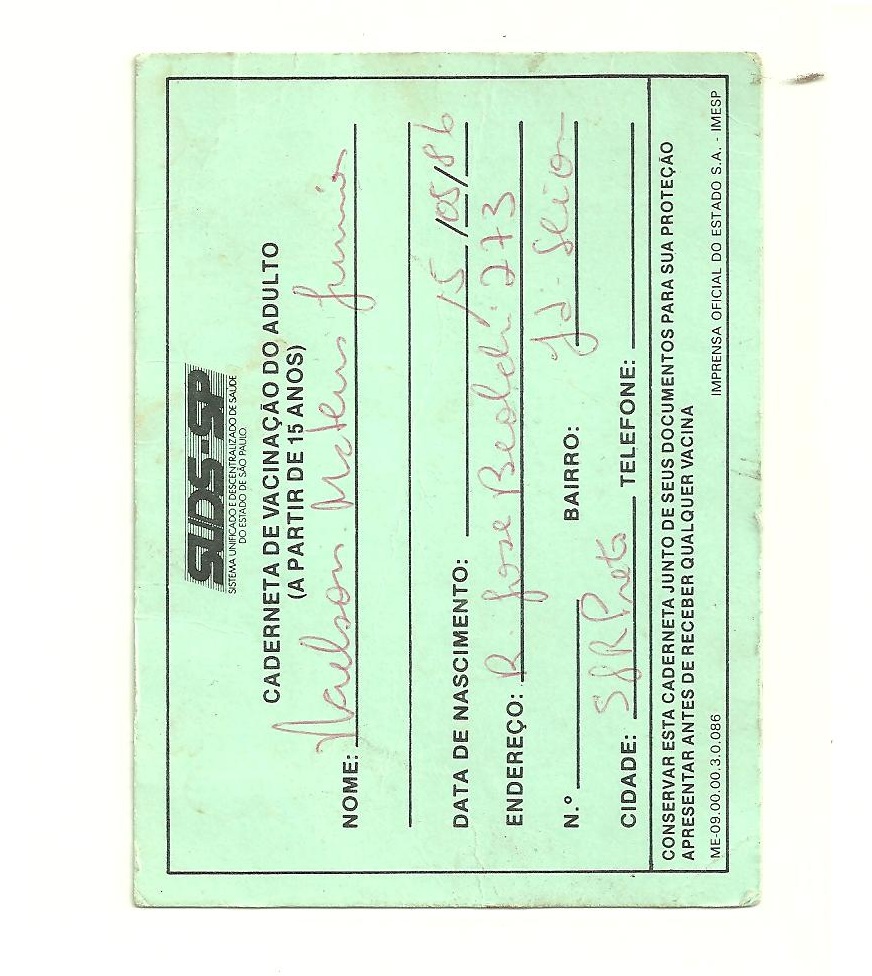 SUDS-SP
SISTEMA UNIFICADO E DESCENTRALIZADO DE SAÚDE
DO ESTADO DE SÃO PAULO
CADERNETA DE VACINAÇÃO DO ADULTO
(A PARTIR DE 15 ANOS)
NOME: Naelson Mateus Junior
DATA DE NASCIMENTO: 15/05/86
ENDEREÇO: R. Jose 273
N.º BAIRRO: Jd.
CIDADE: SJRPreto TELEFONE:
CONSERVAR ESTA CADERNETA JUNTO DE SEUS DOCUMENTOS PARA SUA PROTEÇÃO
APRESENTAR ANTES DE RECEBER QUALQUER VACINA
ME-09.00.00.3.0.086 IMPRENSA OFICIAL DO ESTADO S.A. - IMESP